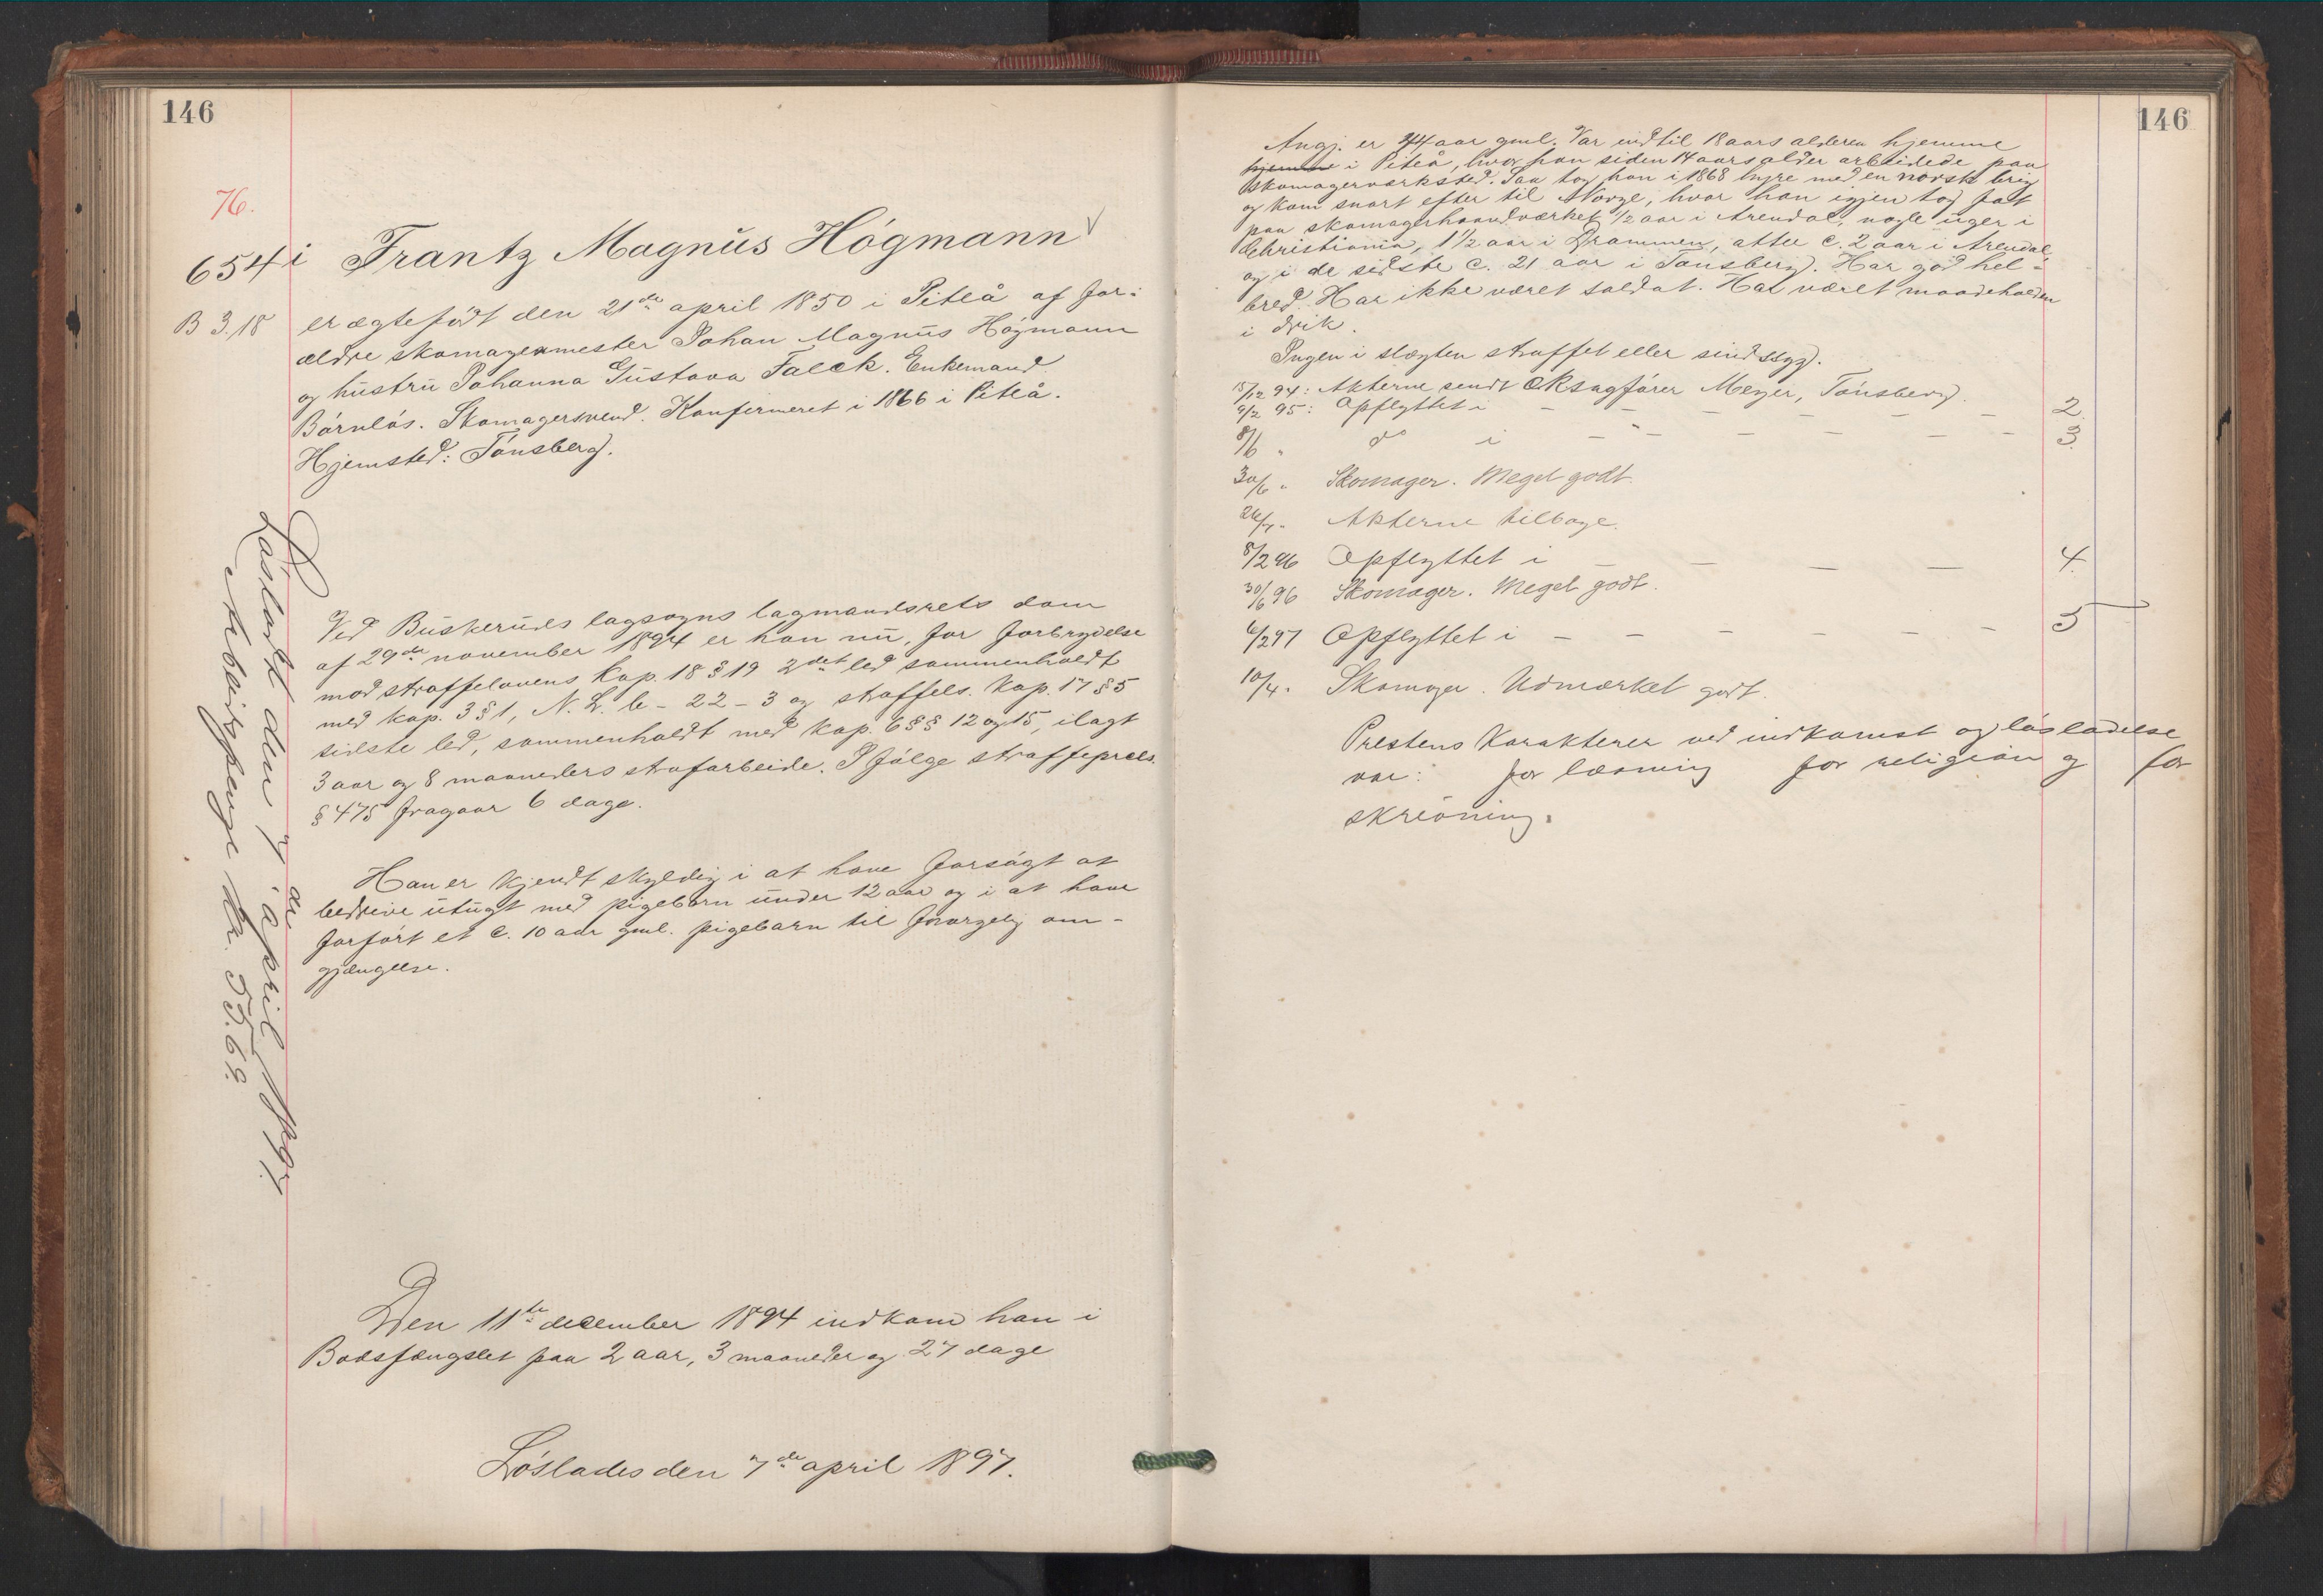 146
76.
654 i Frantz Magnus Högmann
B 3.18
er ægtefödt den 21de april 1850 i Piteå af for-
ældre skomagermester Johan Magnus Högmann
og hustru Johanna Gustava Falck. Enkemand.
Börnlös. Skomagersvend. Konfirmeret i 1866 i Piteå.
Hjemsted: Tönsberg.
Ved Buskeruds lagsogns lagmandsrets dom
af 29de november 1894 er han nu, for forbrydelse
mod straffelovens kap. 18 § 19 2det led sammenholdt
med kap. 3 § 1, N. L. 6 - 22 - 3 og straffels. kap. 17 § 5
sidste led, sammenholdt med kap. 6 §§ 12 og 15, ilagt
3 aar og 8 maaneders strafarbeide. I fölge straffeprcls.
§ 475 fragaar 6 dage.
Han er kjendt skyldig i at have forsögt at
bedrive utugt med pigebarn under 12 aar og i at have
forfört et c. 10 aar gml. pigebarn til forargelig om-
gjængelse.
Den 11te december 1894 indkom han i
Bodsfængslet paa 2 aar, 3 maaneder og 27 dage
Löslades den 7de april 1897.
Lösladt den 7de april 1897.
Arbeidspenge kr. 55.69.
146
Angj. er 44 aar gml. Var indtil 18 aars alderen hjemme
hjemme i Piteå, hvor han siden 14 aars alder arbeidede paa
skomagerværksted. Saa tog han i 1868 hyre med en norsk brig
og kom snart efter til Norge, hvor han igjen tog fat
paa skomagerhaandværket, 1/2 aar i Arendal, nogle uger i
Christiania, 1 1/2 aar i Drammen, atter c. 2 aar i Arendal,
og i de sidste c. 21 aar i Tönsberg. Har god hel-
bred. Har ikke været soldat. Har været maadeholden
i drik.
Ingen i slægten straffet eller sindssyg.
15/12 94: Akterne sendt oksagförer Meyer, Tönsberg.
9/2 95: Opflyttet i - - - - - - 2.
8/6 " do i - - - - - - 3.
30/6 " Skomager. Meget godt.
26/7 " Akterne tilbage.
8/2 96 Opflyttet i - - - - 4.
30/6 96 Skomager. Meget godt.
6/2 97 Opflyttet i - - - - - - 5
10/4 " Skomager. Udmærket godt.
Prestens Karakterer ved indkomst og lösladelse
var: for læsning for religion og for
skrivning.